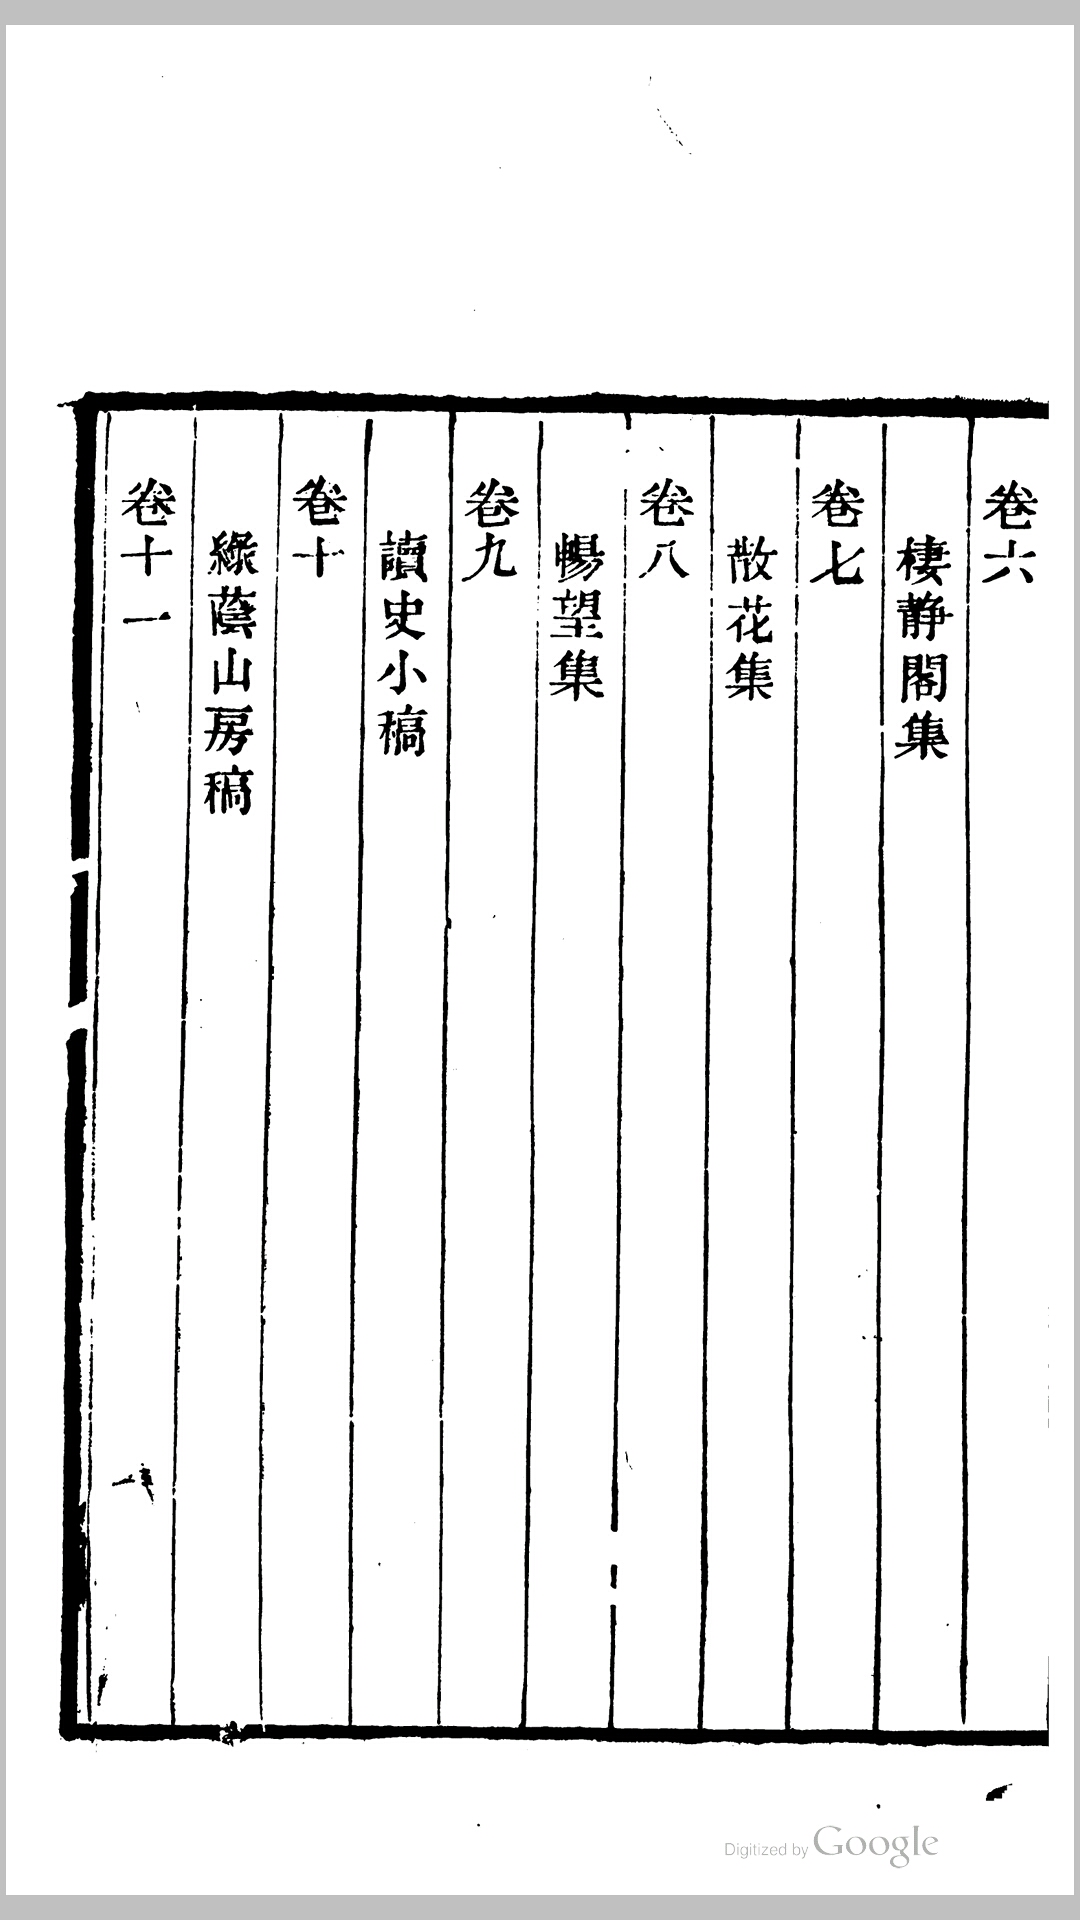 卷六
棲静閣集
卷七
散花集
卷八
暢望集
卷九
讀史小稿
卷十
綠蔭山房稿
卷十一
Digitized by Google